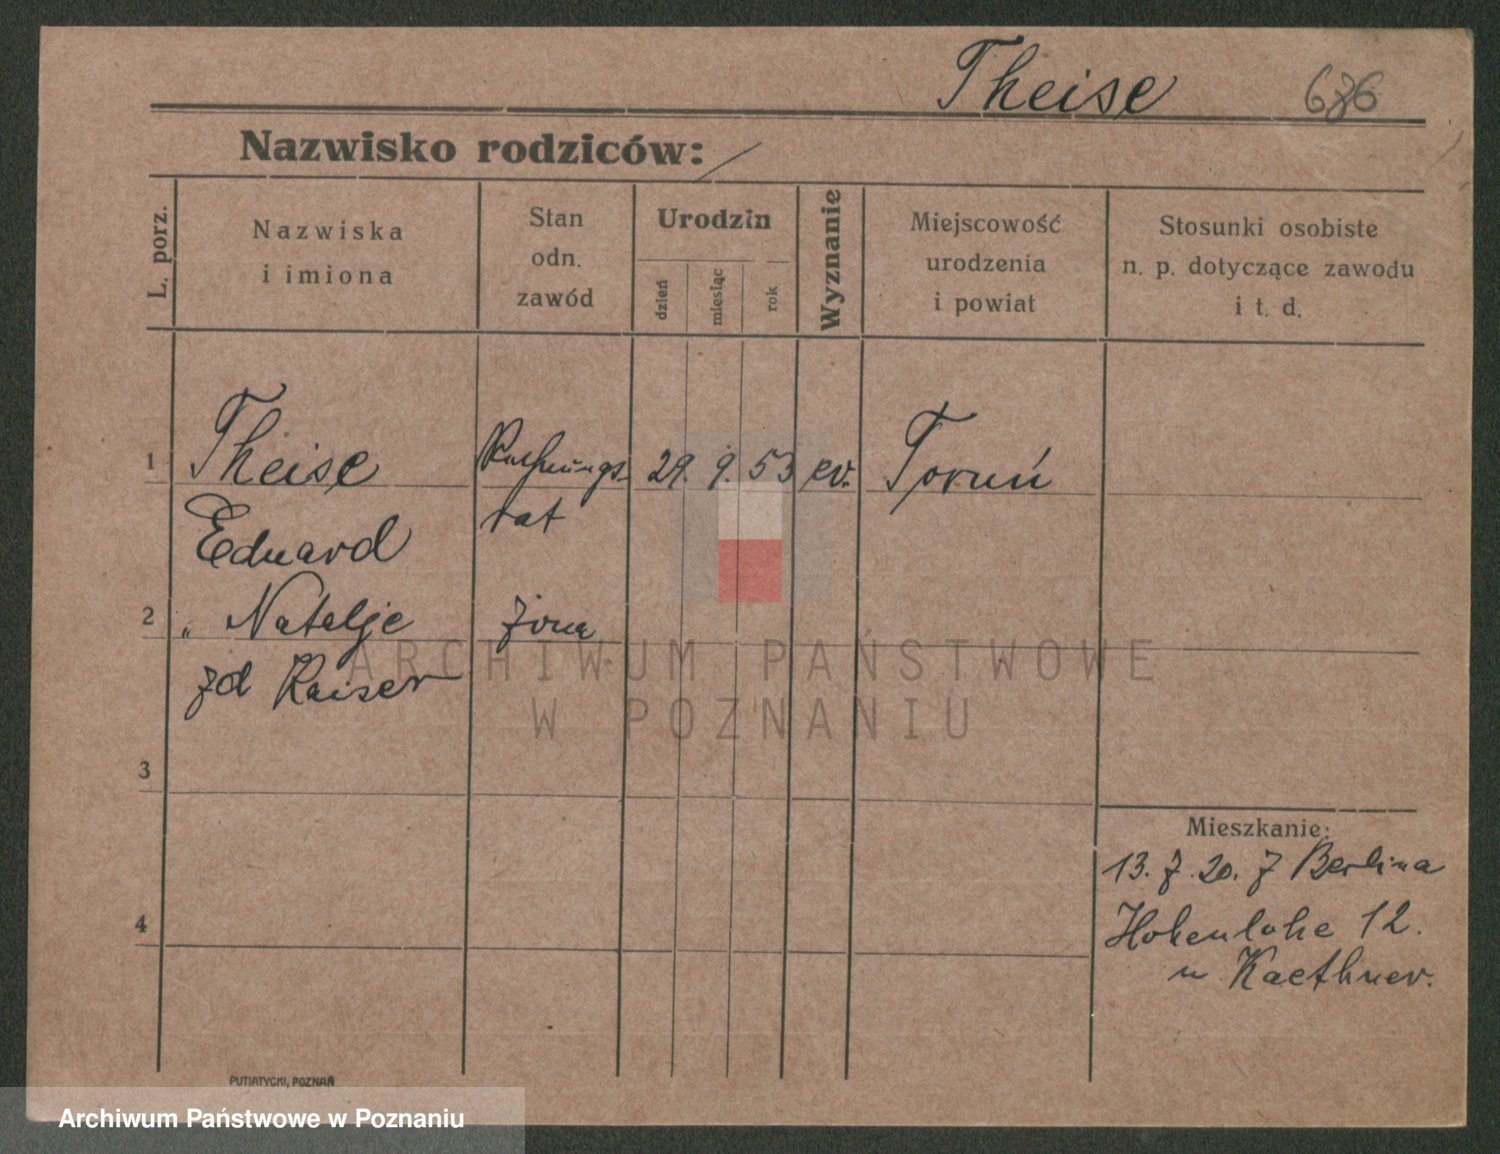 Theise 686
Nazwisko rodziców: /
L. porz.
Nazwiska
i imiona
Stan
odn.
zawód
Urodzin
dzień
miesiąc
rok
Wyznanie
Miejscowość
urodzenia
i powiat
Stosunki osobiste
n. p. dotyczące zawodu
i t. d.
1 Theise Rechnungs- 29. 9. 53 ev. Toruń
Eduard rat
2 " Natalje żona
zd Kaiser
3
4
Mieszkanie:
13. 7. 20. z Berlina
Hohenlohe 12.
u Kaethner.
PUTIATYCKI, POZNAŃ
ARCHIWUM PAŃSTWOWE
W POZNANIU
Archiwum Państwowe w Poznaniu